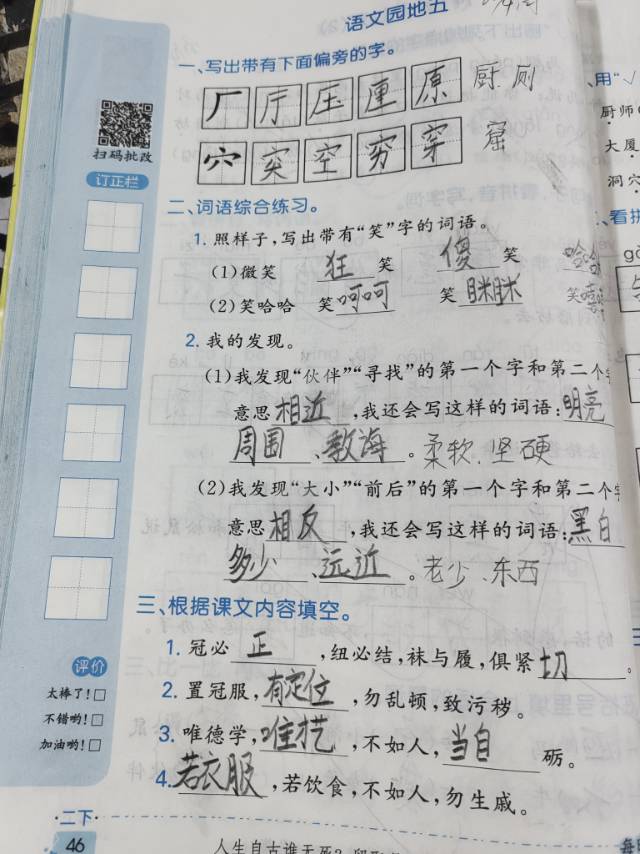 语文园地五
一、写出带有下面偏旁的字。
厂 厅 压 厘 原 厨 厕
穴 突 空 穷 穿 窟
扫码批改
订正栏
二、词语综合练习。
1. 照样子,写出带有“笑”字的词语。
(1)微笑 狂笑 傻笑
(2)笑哈哈 笑呵呵 笑眯眯 笑嘻嘻
2. 我的发现。
(1)我发现“伙伴”“寻找”的第一个字和第二个
意思相近,我还会写这样的词语:明亮
周围、教诲。柔软、坚硬
(2)我发现“大小”“前后”的第一个字和第二个
意思相反,我还会写这样的词语:黑白
多少、远近。老少、东西
三、根据课文内容填空。
1. 冠必正,纽必结,袜与履,俱紧切。
2. 置冠服,有定位,勿乱顿,致污秽。
3. 唯德学,唯才艺,不如人,当自砺。
4. 若衣服,若饮食,不如人,勿生戚。
评价
太棒了!
不错哟!
加油哟!
·二下·
46
用“√
厨师
大厦
洞穴
看拼